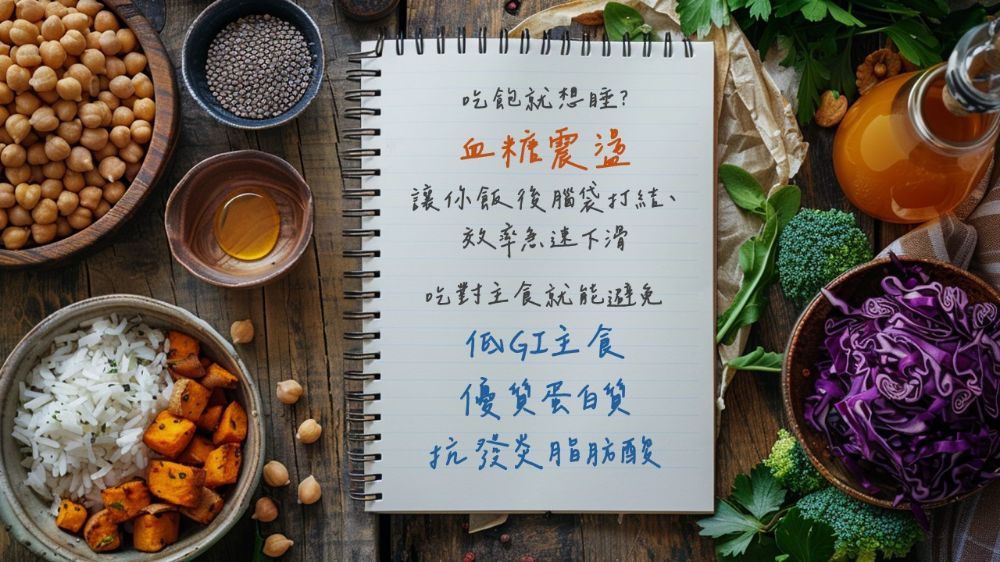 吃飽就想睡?
血糖震盪
讓你飯後腦袋打結、
效率急速下滑
吃對主食就能避免
低GI主食
優質蛋白質
抗發炎脂肪酸